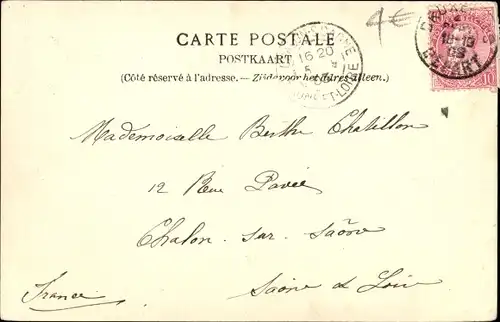 4€
CARTE POSTALE
POSTKAART
(Côté réservé à l'adresse. — Zijde voor het adres alleen.)
16 20
ET-LOIRE
DÉPART
10
Mademoiselle Berthe Chatillon
12 Rue Pavée
Chalon-sur-Saône
France
Saône & Loire